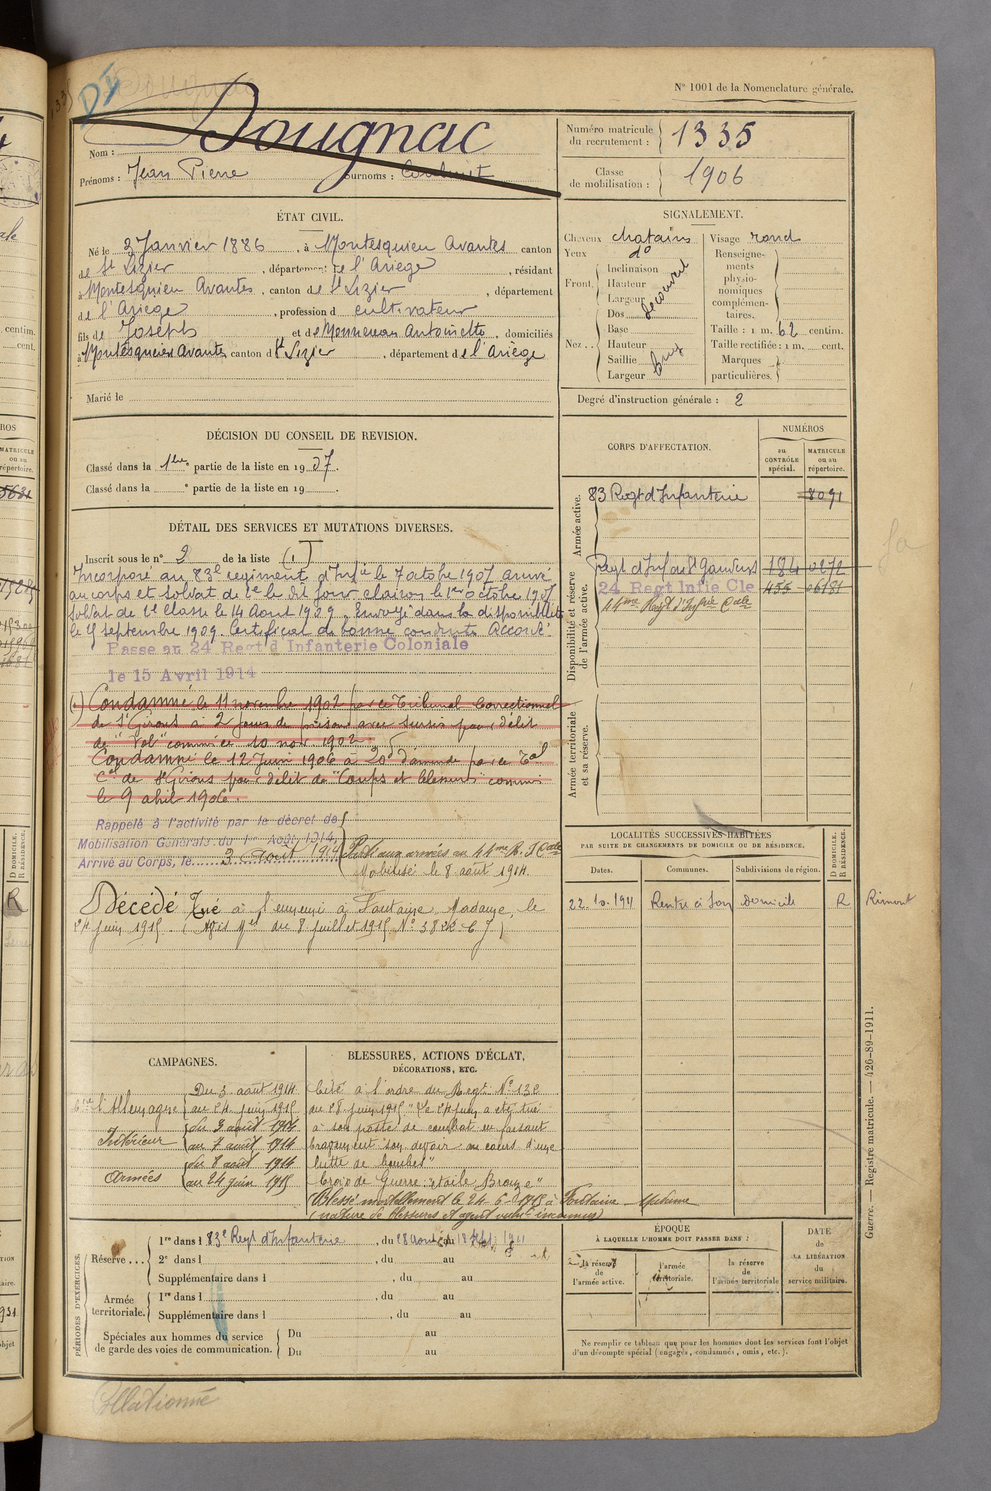 N° 1001 de la Nomenclature générale.
Nom : Dougnac
Prénoms : Jean Pierre Surnoms :
Numéro matricule du recrutement : 1335
Classe de mobilisation : 1906
ÉTAT CIVIL.
Né le 3 Janvier 1886, à Montesquieu Avantes canton
de St Lizier, département de l'Ariège, résidant
à Montesquieu Avantes, canton de St Lizier, département
de l'Ariège, profession d cultivateur
fils de Joseph et de Antoinette domiciliés
à Montesquieu Avantes canton d St Lizier, département de l'Ariège
Marié le
SIGNALEMENT.
Cheveux chatains Visage rond
Yeux do Renseignements physionomiques complémentaires.
Front. Inclinaison
Hauteur
Largeur
découvert
Nez.. Dos
Base
Hauteur
Saillie
Largeur
Taille : 1 m. 62 centim.
Taille rectifiée : 1 m. cent.
Marques particulières.
Degré d'instruction générale : 2
DÉCISION DU CONSEIL DE REVISION.
Classé dans la 1re partie de la liste en 1907.
Classé dans la e partie de la liste en 19 .
CORPS D'AFFECTATION.
NUMÉROS
au CONTRÔLE spécial.
MATRICULE ou au répertoire.
Armée active.
83 Regt d'Infanterie 8091
Disponibilité et réserve de l'armée active.
Regt d'Inf de St Gaudens 184
24 Regt Infie Cle
44me Regt d'Infrie Cale
Armée territoriale et sa réserve.
DÉTAIL DES SERVICES ET MUTATIONS DIVERSES.
Inscrit sous le n° 2 de la liste (1)
Incorporé au 83e régiment d'Infie le 7 octobre 1907 arrivé
au corps et soldat de 2e cl le dit jour clairon le 1er octobre 1907
Soldat de 1e Classe le 14 Aout 1909. Envoyé dans la disponibilité
le 25 septembre 1909. Certificat de bonne conduite Accordé.
Passe au 24 Regt d'Infanterie Coloniale
le 15 Avril 1914
(1) Condamné le 11 novembre 1902 par le Tribunal Correctionnel
de St Girons à 2 jours de prison avec sursis pour délit
de "Vol" commis le 10 nov 1902.
Condamné le 12 Juin 1906 à 20f d'amende par le Tal
Cel de St Girons pour délit de "Coups et blessures" commis
le 9 abil 1906.
Rappelé à l'activité par le décret de
Mobilisation Générale du 1er Août 1914,
Arrivé au Corps, le 3 Aout 1914
Parti aux armées au 44me R. I Cale
Mobilisé le 8 août 1914.
Décédé Tué à l'ennemi à Fontaine Madame, le
24 juin 1915. (Avis Mel du 8 Juillet 1915 N°
LOCALITÉS SUCCESSIVES HABITÉES
PAR SUITE DE CHANGEMENTS DE DOMICILE OU DE RÉSIDENCE.
Dates. Communes. Subdivisions de région. D DOMICILE. R RÉSIDENCE.
22.10.1911 Rentre à Son Domicile R Rimont
CAMPAGNES.
Du 3 août 1914
Cre l'Allemagne au 24 juin 1915
Intérieur du 3 août 1914
au 7 août 1914
Armées du 8 août 1914
au 24 juin 1915
BLESSURES, ACTIONS D'ÉCLAT,
DÉCORATIONS, ETC.
Cité à l'ordre du Regt N° 132
du 28 juin 1915 "Le 24 juin a été tué
à son poste de combat en faisant
bravement son devoir au cours d'une
lutte de bombes"
Croix de Guerre étoile Bronze"
(Blessé mortellement le 24-6-1915 à Fontaine Madame
(nature de blessures et agent inconnus)
PÉRIODES D'EXERCICES.
Réserve... 1re dans l 83e Regt d'Infanterie, du 28 Aout au 1911
2e dans l , du au
Supplémentaire dans l , du au
Armée territoriale. 1re dans l , du au
Supplémentaire dans l , du au
Spéciales aux hommes du service de garde des voies de communication. Du au
Du au
ÉPOQUE
À LAQUELLE L'HOMME DOIT PASSER DANS :
la réserve de l'armée active.
l'armée territoriale.
la réserve de l'armée territoriale
DATE de LA LIBÉRATION du service militaire.
Ne remplir ce tableau que pour les hommes dont les services font l'objet
d'un décompte spécial (engagés, condamnés, omis, etc.).
Guerre. — Registre matricule. — 426-89-1911.
Collationné